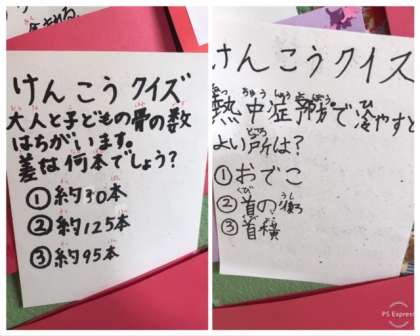 けんこうクイズ
大人と子どもの骨の数
はちがいます。
差は何本でしょう?
①約30本
②約125本
③約95本
けんこうクイズ
熱中症予防で冷やすと
よい所は?
①おでこ
②首の後ろ
③首横
PS Express